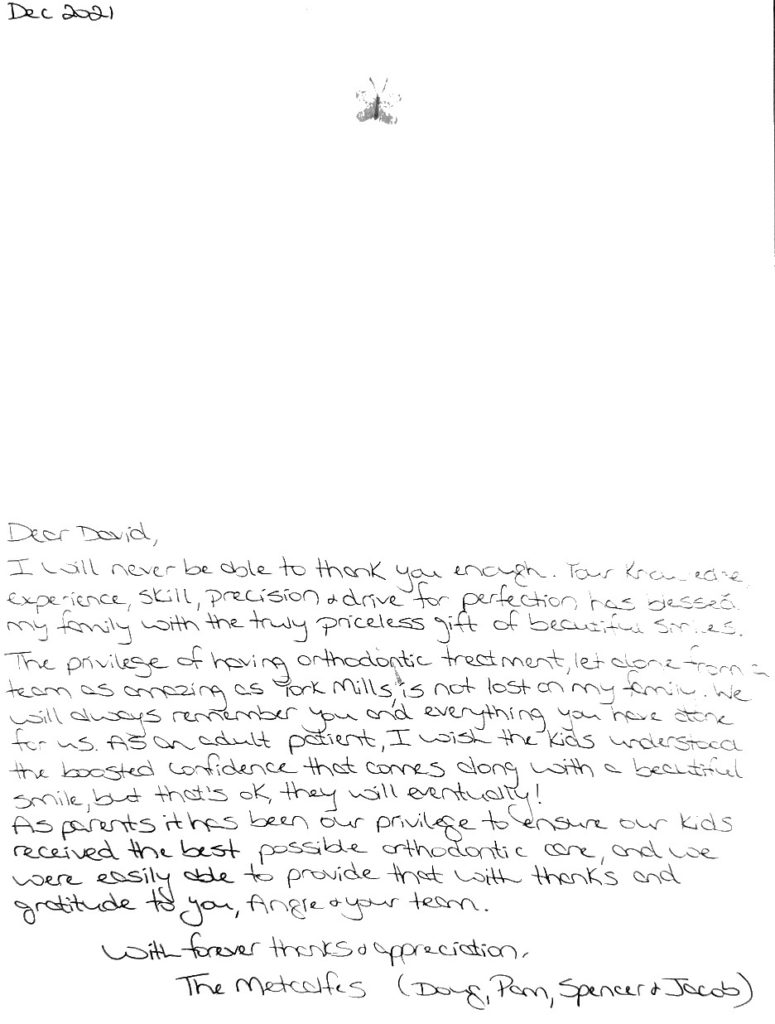 Dec 2021
Dear David,
I will never be able to thank you enough. Your knowledge,
experience, skill, precision & drive for perfection has blessed
my family with the truly priceless gift of beautiful smiles.
The privilege of having orthodontic treatment, let alone from a
team as amazing as York Mills, is not lost on my family. We
will always remember you and everything you have done
for us. As an adult patient, I wish the kids understood
the boosted confidence that comes along with a beautiful
smile, but that's ok, they will eventually!
As parents it has been our privilege to ensure our kids
received the best possible orthodontic care, and we
were easily able to provide that with thanks and
gratitude to you, Angie & your team.
With forever thanks & appreciation,
The Metcalfes (Doug, Pam, Spencer & Jacob)